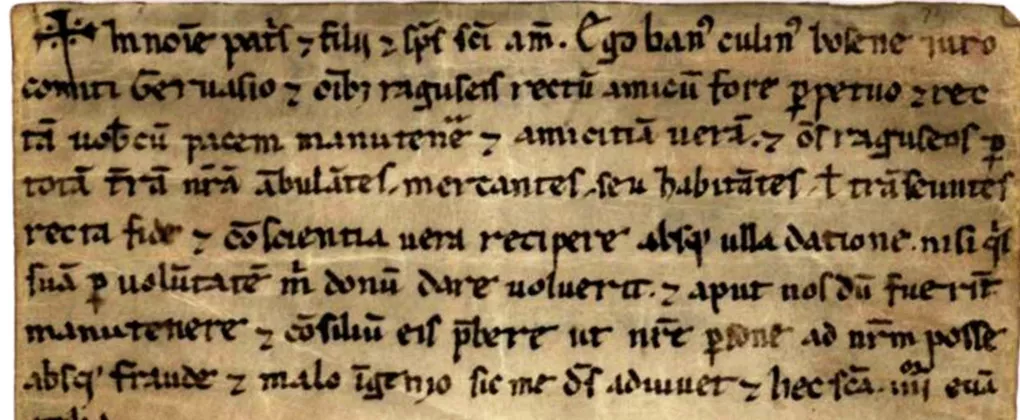 ✝ In noīe pat̄s ⁊ filii ⁊ sp̄s sc̄i am̄. Ego ban᾽ culin᾽ bosene iuro
comiti Geruasio ⁊ oīb; raguseis rectū amicū fore ꝑpetuo ⁊ rec
tā uob̄cū pacem manutenē ⁊ amicitiā uerā. ⁊ ōs raguseos ꝑ
totā t̄rā nr̄ā ābulātes, mercantes, seu habitātes ł trāseuntes
recta fide ⁊ cōscientia uera recipere absq᾽ ulla datione. nisi q̄s
suā ꝑ uolūtatē m̄ donū dare uoluerit. ⁊ aput nos dū fuerīt
manutenere ⁊ cōsiliū eis p̄bere ut nr̄e ꝑsone ad nr̄m posse
absq᾽ fraude ⁊ malo īgenio sic me d̄s adiuuet ⁊ hec sc̄a. iiii᷒ euā